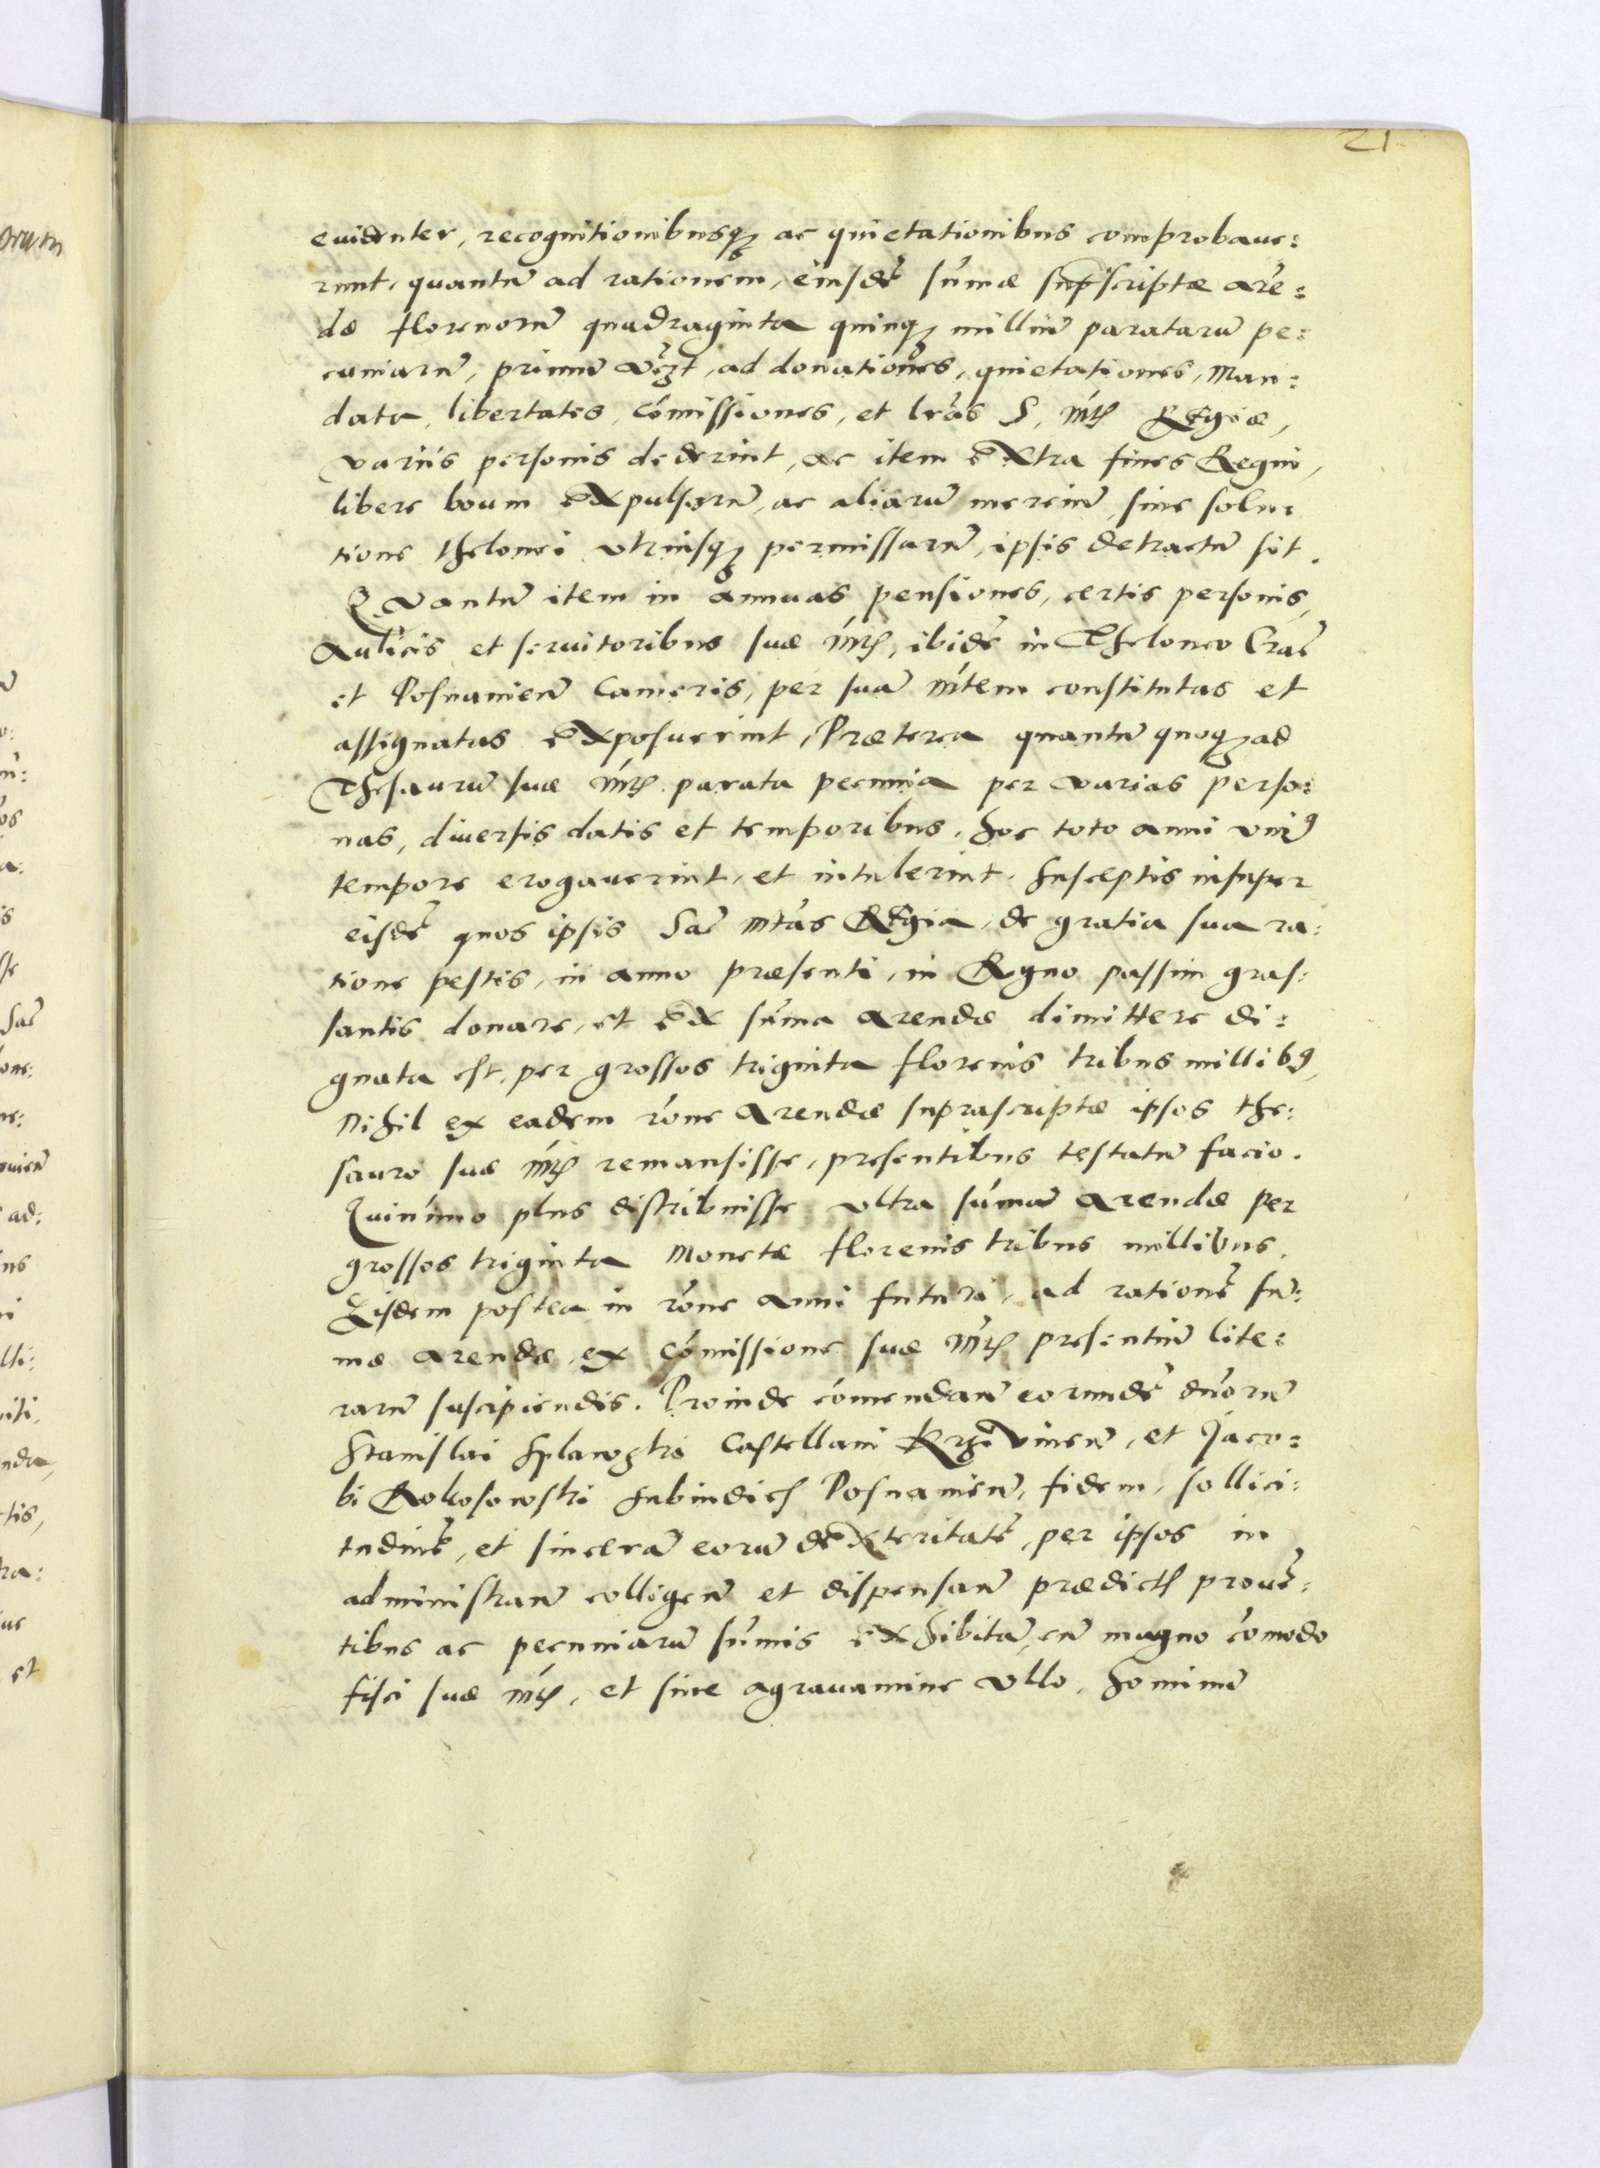 21
evidenter, recognitionibusq3 ac quietationibus comprobaue:
runt, quantũ ad rationem, eiusdẽ sum̃ae sup̃scriptae arẽ:
dae florenorũ quadraginta quinq3 milliũ paratarũ pe:
cuniarũ, primũ, ad donationes, quietationes, Man:
data, libertates, cõmissiones, et lr̃as S. Mtis REgiae,
variis personis dederint, ac item EXtra fines Regni,
libere boum EXpulsorũ, ac aliarũ merciũ, sine solu:
tione thelonei utriusq3 permissarũ, ipsis detractũ sit.
QVantũ item in annuas pensiones, certis personis,
Aulicis et seruitoribus suae Mtis, ibidẽ in Theloneo Crac̃
et Posnanien̄ Cameris, per suã Mtem constitutas et
assignatas EXposuerint, Praeterea quantũ quoq3 ad
Thesaurũ suae Mtis parata pecunia per varias perso:
nas, diversis datis et temporibus, hoc toto anni uniꝰ
tempore erogauerint, et intulerint. Susceptis insuper
eisdẽ quos ipsis Sac̃ Mtas REgia, de gratia sua ra:
tione pestis, in anno praesenti, in Regno passim gras:
santis donare, et EX sum̃a Arendae dimittere di:
gnata est, per grossos triginta florenis tribus millibꝰ,
Nihil ex eadem rõne Arendae suprascriptae ipsos the:
sauro suae Mtis remansisse, presentibus testatũ facio.
Quinimo plus distribuisse ultra sum̃am Arendae per
grossos triginta Monetae florenis tribus millibus.
Eisdem postea in rõne Anni futuri, ad rationẽ sum̃:
mae Arendae, ex Cõmissione suae Mtis presentiũ lite:
rarũ suscipiendis. Proinde cõmendan̄ eorundẽ duorũ
Stanislai Splawski Castellani Krziwinen̄, et Jaco:
bi Rokosowski Subiudicis Posnanien̄, fidem, sollici:
tudinẽ, et sincerã eorũ dEXteritatẽ, per ipsos in
administran̄ colligen̄ et dispensan̄ praedictis prouẽ:
tibus ac pecuniarũ sum̃is EXhibitã, cũ magno cõmodo
fisci suae Mtis, et sine agrauamine ullo, hominũ